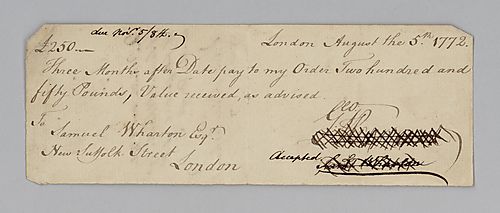 due Nov.r 5/8th.
£250.— London August the 5.th 1772.
Three Months after Date pay to my Order Two hundred and
fifty Pounds, Value received, as advised.
Geo
To
Samuel Wharton Esq.r
New Suffolk Street
London
Accepted